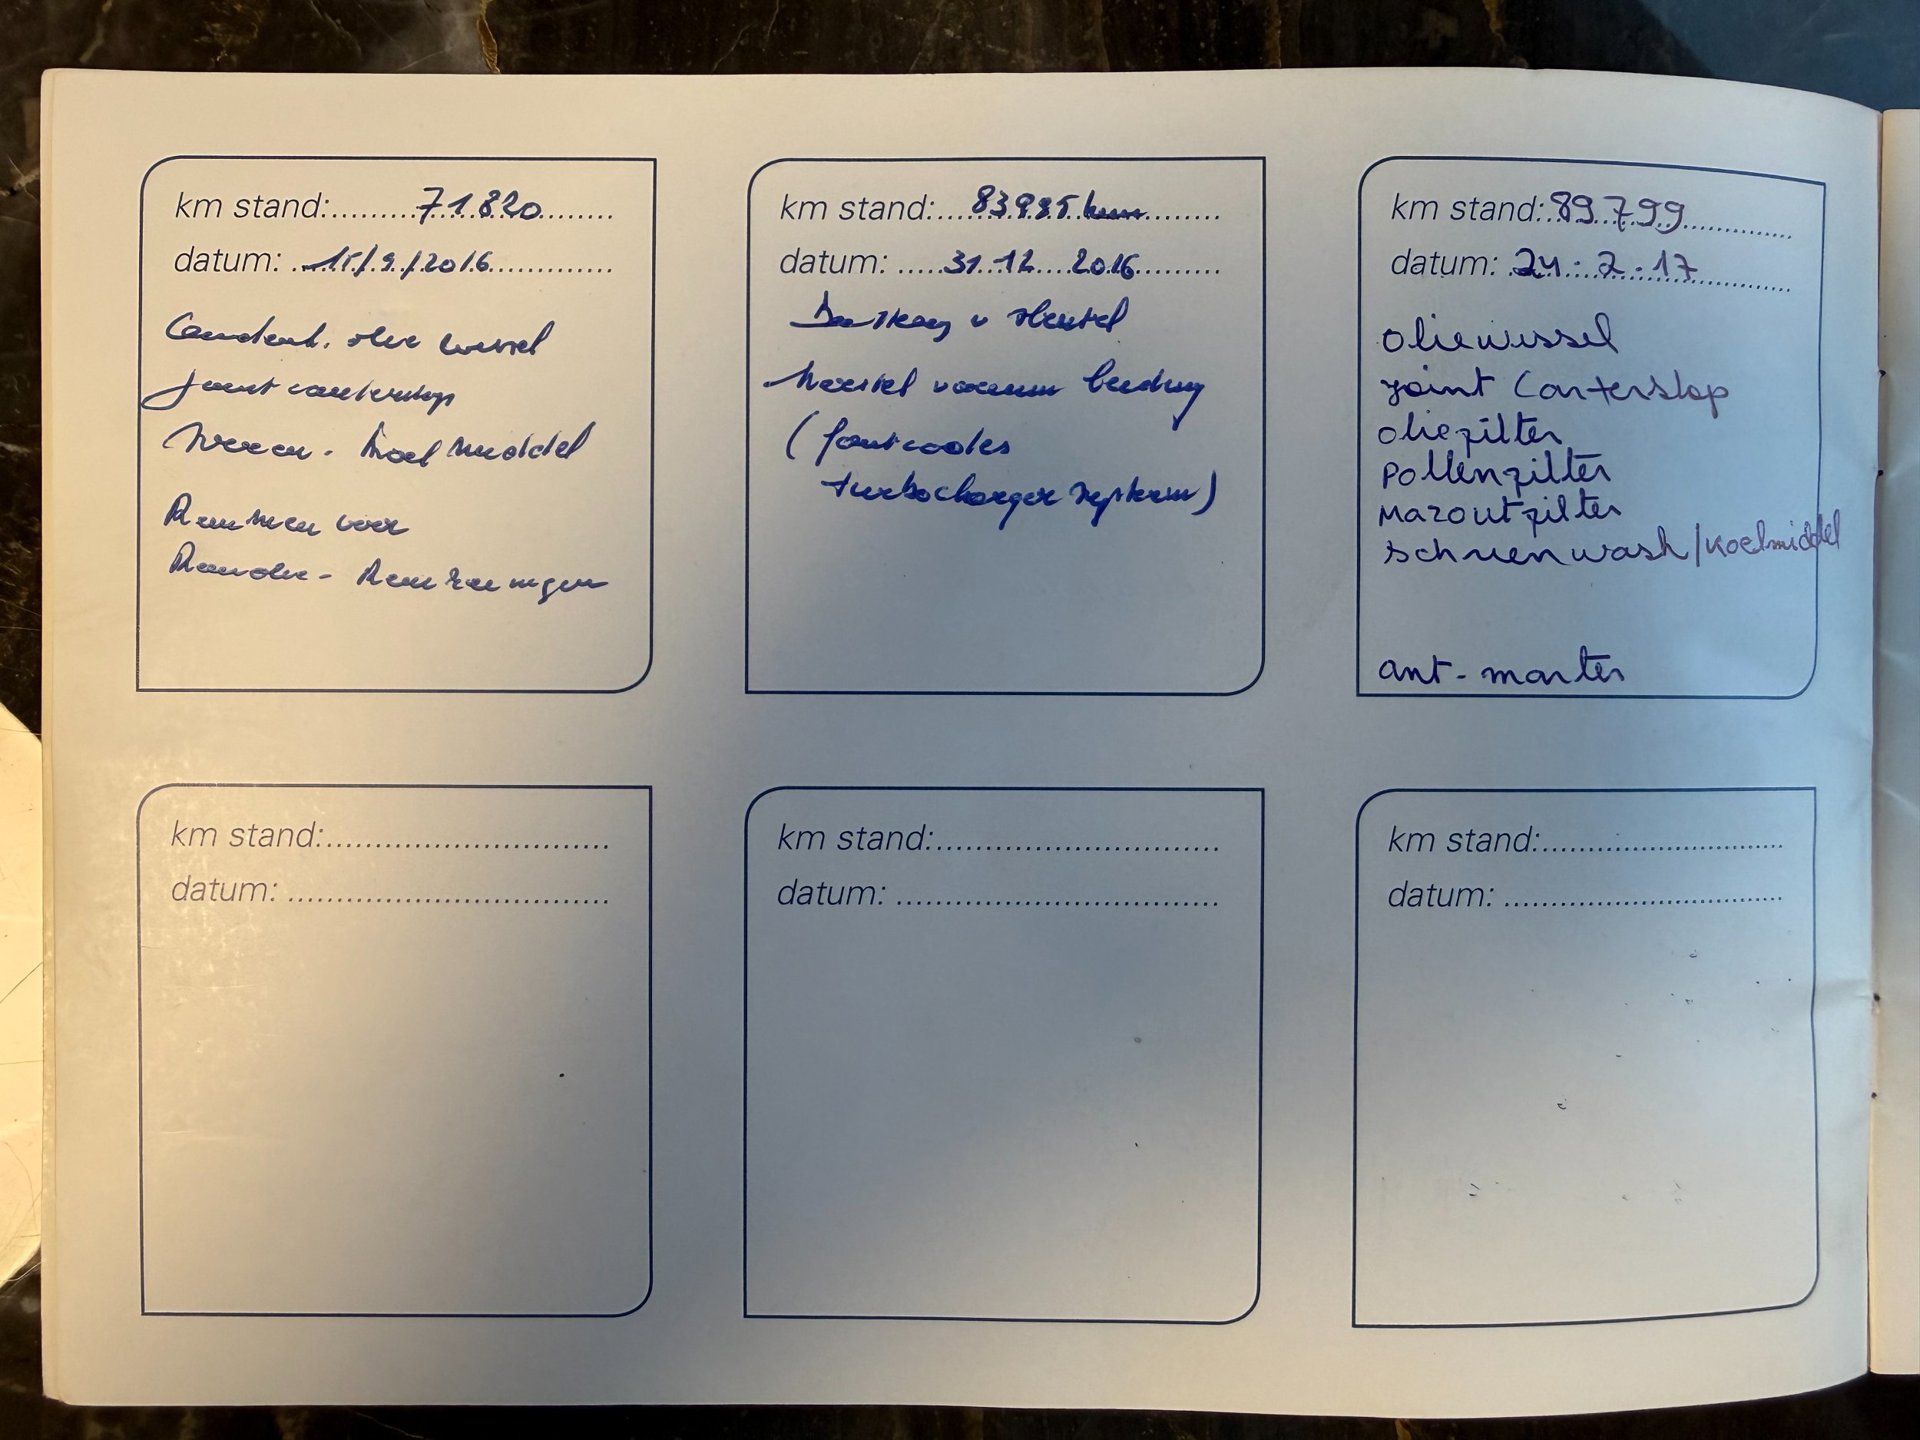 km stand: 71.820
datum: 15/9/2016
olie wissel
joint carterstop
koelmiddel
Remmen voor
Remolie - Remreinigen
km stand: 83985 km
datum: 31.12 2016
sleutel
Herstel vacuum leiding
(foutcodes
turbocharger systeem)
km stand: 89.799
datum: 24.2.17
oliewissel
joint Carterstop
oliefilter
pollenfilter
Mazoutfilter
schuenwash/koelmiddel
ant-marter
km stand:
datum:
km stand:
datum:
km stand:
datum: